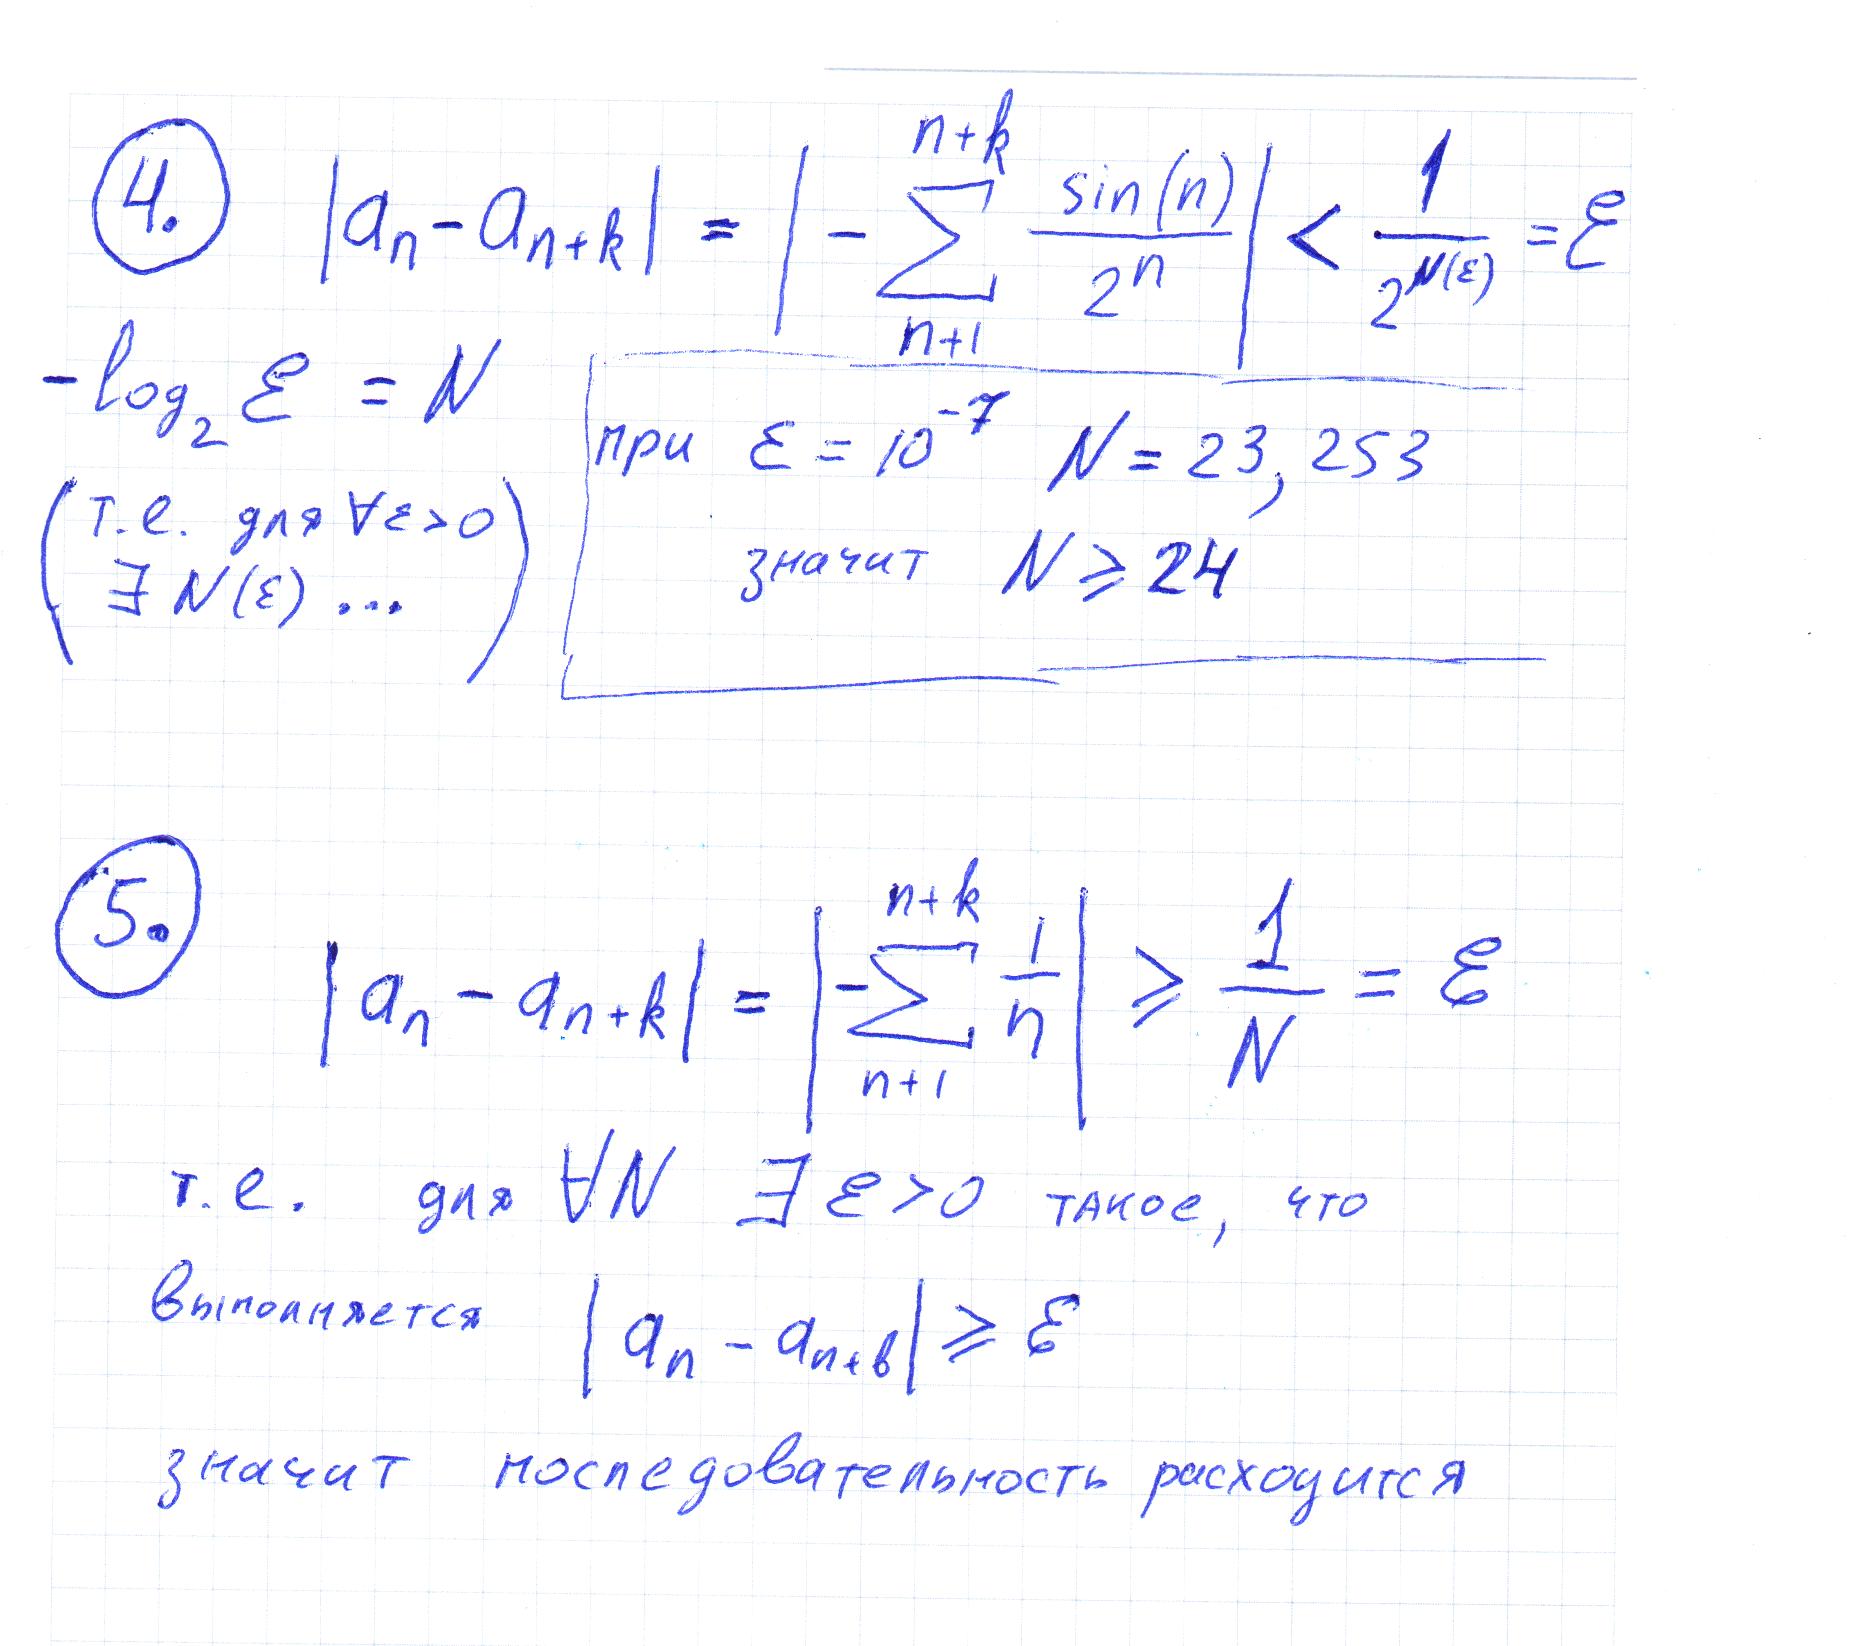 4. |aₙ - aₙ₊ₖ| = |- ∑ₙ₊₁ⁿ⁺ᵏ sin(n)/2ⁿ| < 1/2^N(ε) = ε
-log₂ ε = N
(т.е. для ∀ε>0
∃ N(ε) ...)
при ε = 10⁻⁷ N = 23,253
значит N ⩾ 24
5. |aₙ - aₙ₊ₖ| = |- ∑ₙ₊₁ⁿ⁺ᵏ 1/n| ⩾ 1/N = ε
т.е. для ∀N ∃ ε>0 такое, что
выполняется |aₙ - aₙ₊ₖ| ⩾ ε
значит последовательность расходится